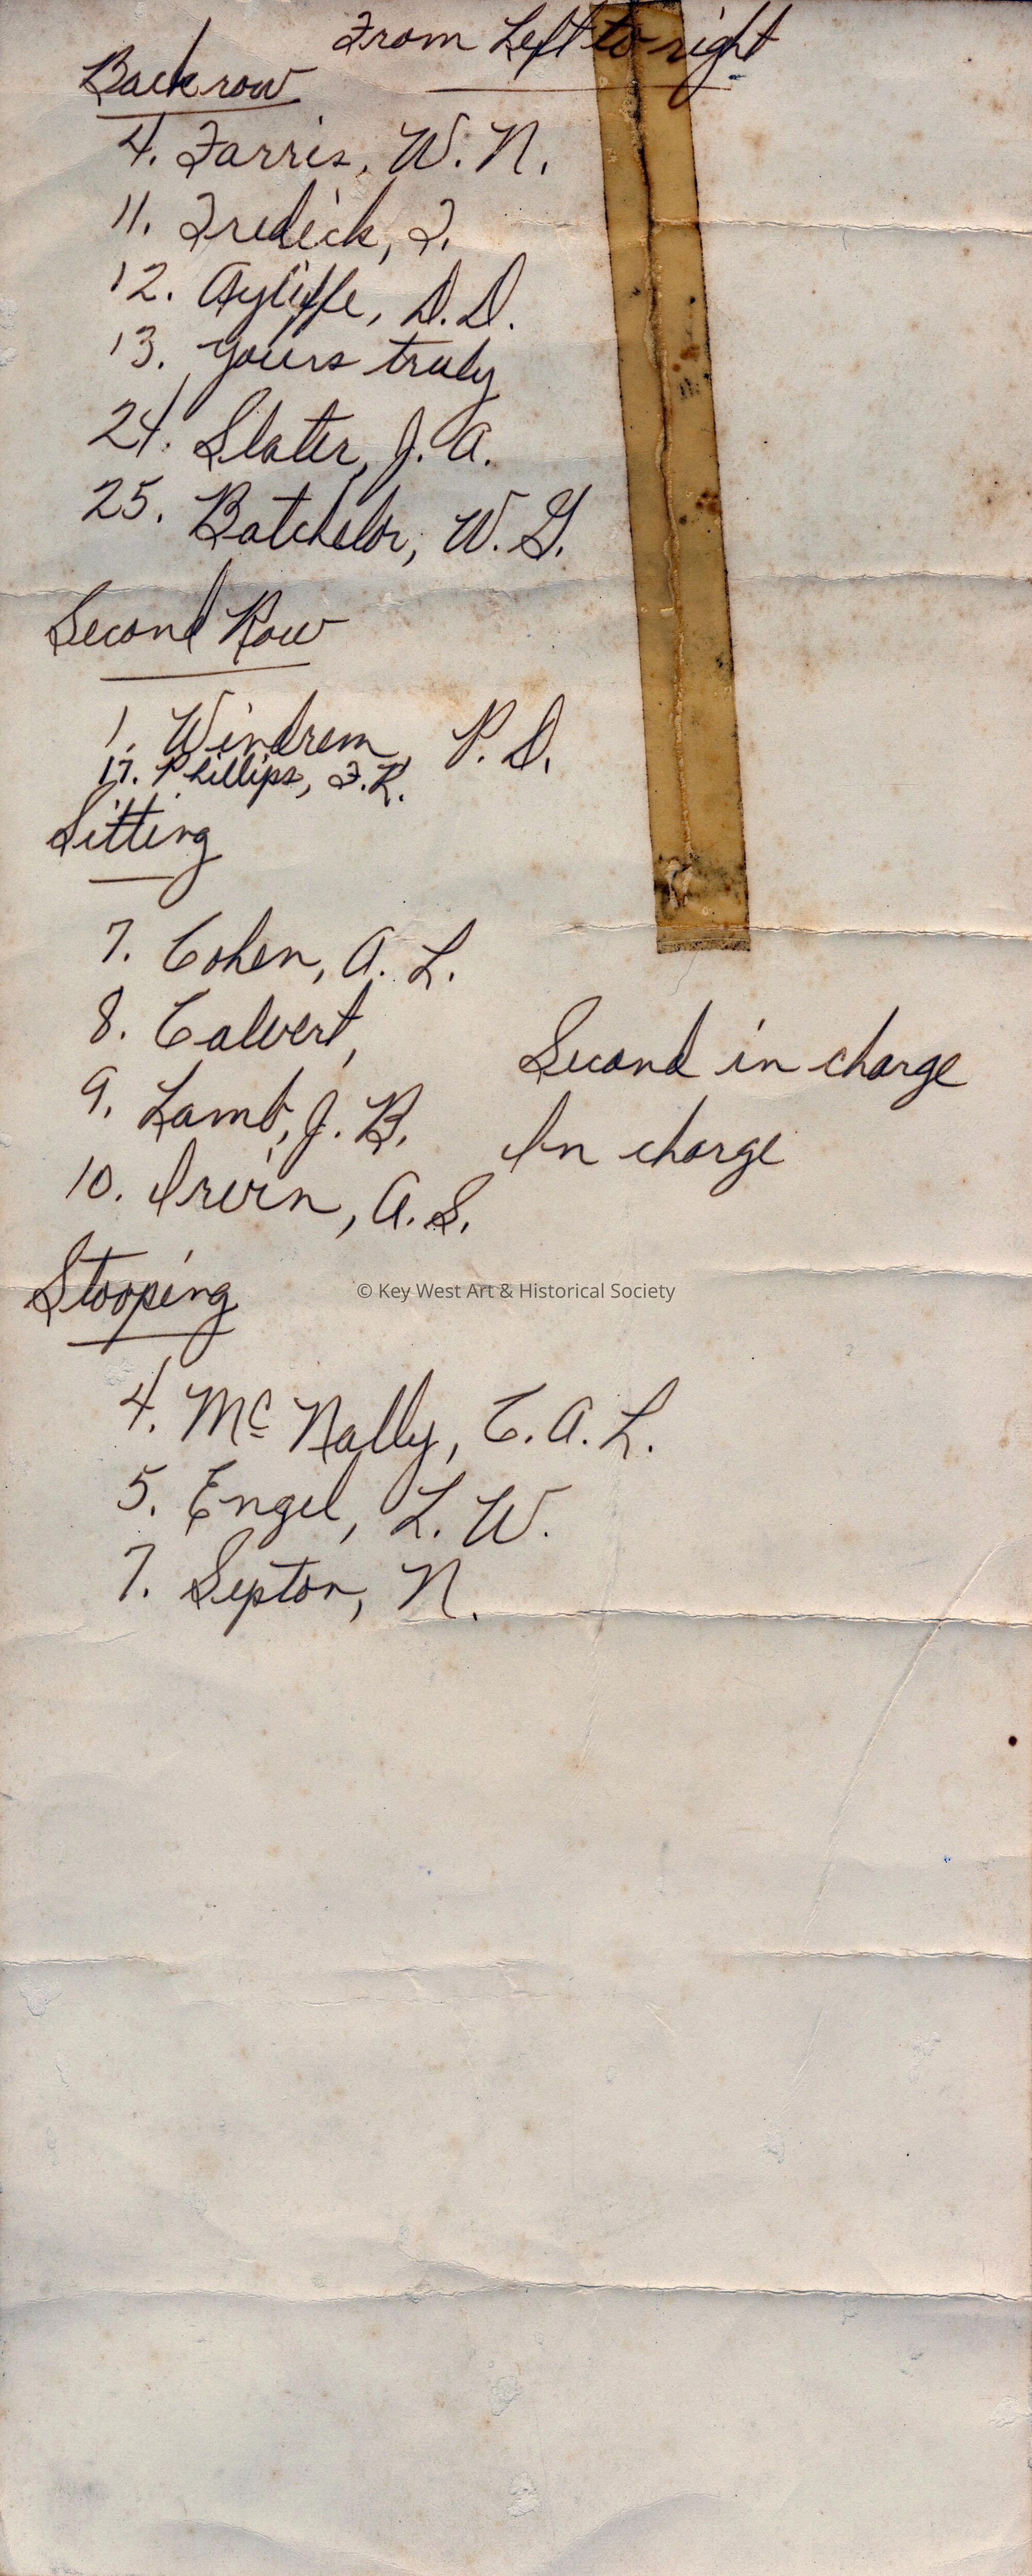 From Left to right
Back row
4. Farris, W. N.
11. Fredick, F.
12. Ayliffe, D. D.
13. Yours truly
24. Slater, J. A.
25. Batchelor, W. G.
Second Row
1. Windrem, P. D.
17. Phillips, F. R.
Sitting
7. Cohen, A. L.
8. Calvert, Second in charge
9. Lamb, J. B. In charge
10. Irvin, A. S.
© Key West Art & Historical Society
Stooping
4. Mc Nally, C. A. L.
5. Engel, L. W.
7. Septon, N.